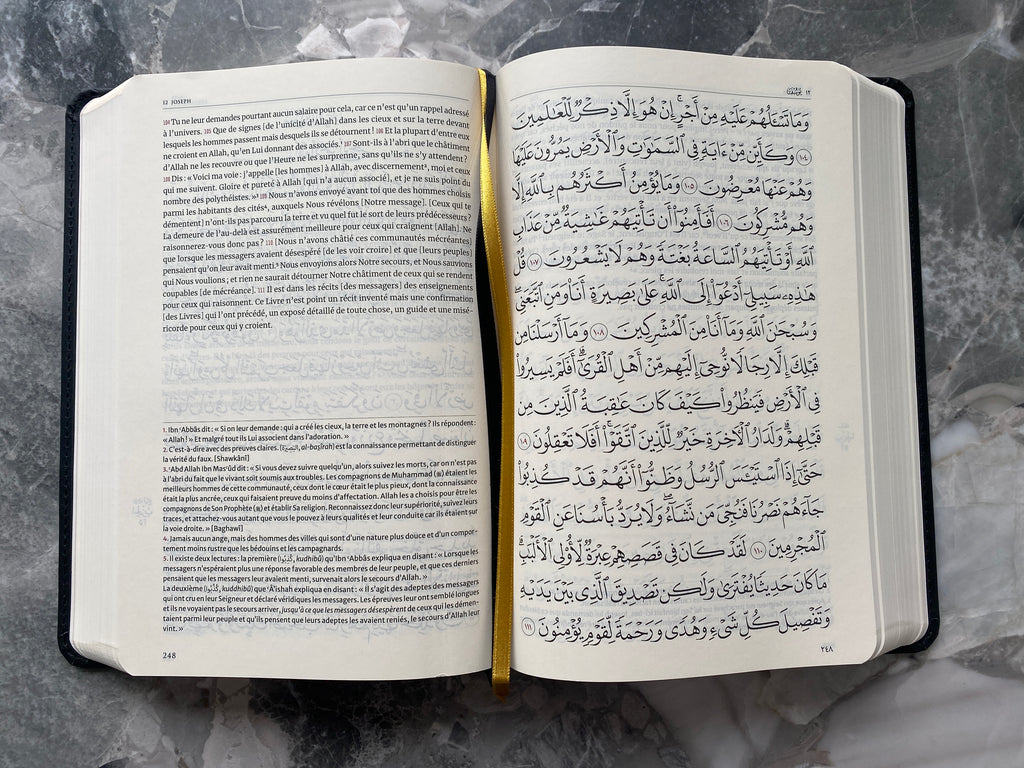 12 JOSEPH
104 Tu ne leur demandes pourtant aucun salaire pour cela, car ce n'est qu'un rappel adressé
à l'univers. 105 Que de signes [de l'unicité d'Allah] dans les cieux et sur la terre devant
lesquels les hommes passent mais desquels ils se détournent ! 106 Et la plupart d'entre eux
ne croient en Allah, qu'en Lui donnant des associés.¹ 107 Sont-ils à l'abri que le châtiment
d'Allah ne les recouvre ou que l'Heure ne les surprenne, sans qu'ils ne s'y attendent ?
108 Dis : « Voici ma voie : j'appelle [les hommes] à Allah, avec discernement², moi et ceux
qui me suivent. Gloire et pureté à Allah [qui n'a aucun associé], et je ne suis point du
nombre des polythéistes. »³ 109 Nous n'avons envoyé avant toi que des hommes choisis
parmi les habitants des cités⁴, auxquels Nous révélons [Notre message]. [Ceux qui te
démentent] n'ont-ils pas parcouru la terre et vu quel fut le sort de leurs prédécesseurs ?
La demeure de l'au-delà est assurément meilleure pour ceux qui craignent [Allah]. Ne
raisonnerez-vous donc pas ? 110 [Nous n'avons châtié ces communautés mécréantes]
que lorsque les messagers avaient désespéré [de les voir croire] et que [leurs peuples]
pensaient qu'on leur avait menti.⁵ Nous envoyions alors Notre secours, et Nous sauvions
qui Nous voulions ; et rien ne saurait détourner Notre châtiment de ceux qui se rendent
coupables [de mécréance]. 111 Il est dans les récits [des messagers] des enseignements
pour ceux qui raisonnent. Ce Livre n'est point un récit inventé mais une confirmation
[des Livres] qui l'ont précédé, un exposé détaillé de toute chose, un guide et une misé-
ricorde pour ceux qui y croient.
1. Ibn ʿAbbâs dit : « Si on leur demande : qui a créé les cieux, la terre et les montagnes ? Ils répondent :
« Allah! » Et malgré tout ils Lui associent dans l'adoration. »
2. C'est-à-dire avec des preuves claires. (البَصِيرَة, al-basîrah) est la connaissance permettant de distinguer
la vérité du faux. [Shawkânî]
3. ʿAbd Allah Ibn Masʿûd dit : « Si vous devez suivre quelqu'un, alors suivez les morts, car on n'est pas
à l'abri du fait que le vivant soit soumis aux troubles. Les compagnons de Muhammad (ﷺ) étaient les
meilleurs hommes de cette communauté, ceux dont le cœur était le plus pieux, dont la connaissance
était la plus ancrée, ceux qui faisaient preuve du moins d'affectation. Allah les a choisis pour être les
compagnons de Son Prophète (ﷺ) et établir Sa religion. Reconnaissez donc leur supériorité, suivez leurs
traces, et attachez-vous autant que vous le pouvez à leurs qualités et leur conduite car ils étaient sur
la voie droite. » [Baghawî]
4. Jamais aucun ange, mais des hommes des villes qui sont d'une nature plus douce et d'un compor-
tement moins rustre que les bédouins et les campagnards.
5. Il existe deux lectures : la première (كُذِبُوا, kudhibû) qu'Ibn ʿAbbâs expliqua en disant : « Lorsque les
messagers n'espéraient plus une réponse favorable des membres de leur peuple, et que ces derniers
pensaient que les messagers leur avaient menti, survenait alors le secours d'Allah. »
La deuxième (كُذِّبُوا, kuddhibû) que ʿÂishah expliqua en disant : « Il s'agit des adeptes des messagers
qui ont cru en leur Seigneur et déclaré véridiques les messagers. Les épreuves leur ont semblé longues
et ils ne voyaient pas le secours arriver, jusqu'à ce que les messagers désespèrent de ceux qui les démen-
taient parmi leur peuple et qu'ils pensent que leurs adeptes les avaient reniés, le secours d'Allah leur
vint. »
248
١٢ يُوسُف
وَمَا تَسْـَٔلُهُمْ عَلَيْهِ مِنْ أَجْرٍ إِنْ هُوَ إِلَّا ذِكْرٌ لِّلْعَـٰلَمِينَ
١٠٤ وَكَأَيِّن مِّنْ ءَايَةٍ فِى ٱلسَّمَـٰوَٰتِ وَٱلْأَرْضِ يَمُرُّونَ عَلَيْهَا
وَهُمْ عَنْهَا مُعْرِضُونَ ١٠٥ وَمَا يُؤْمِنُ أَكْثَرُهُم بِٱللَّهِ إِلَّا
وَهُم مُّشْرِكُونَ ١٠٦ أَفَأَمِنُوٓا۟ أَن تَأْتِيَهُمْ غَـٰشِيَةٌ مِّنْ عَذَابِ
ٱللَّهِ أَوْ تَأْتِيَهُمُ ٱلسَّاعَةُ بَغْتَةً وَهُمْ لَا يَشْعُرُونَ ١٠٧ قُلْ
هَـٰذِهِۦ سَبِيلِىٓ أَدْعُوٓا۟ إِلَى ٱللَّهِ عَلَىٰ بَصِيرَةٍ أَنَا۠ وَمَنِ ٱتَّبَعَنِى
وَسُبْحَـٰنَ ٱللَّهِ وَمَآ أَنَا۠ مِنَ ٱلْمُشْرِكِينَ ١٠٨ وَمَآ أَرْسَلْنَا مِن
قَبْلِكَ إِلَّا رِجَالًا نُّوحِىٓ إِلَيْهِم مِّنْ أَهْلِ ٱلْقُرَىٰٓ أَفَلَمْ يَسِيرُوا۟
فِى ٱلْأَرْضِ فَيَنظُرُوا۟ كَيْفَ كَانَ عَـٰقِبَةُ ٱلَّذِينَ مِن
قَبْلِهِمْ وَلَدَارُ ٱلْـَٔاخِرَةِ خَيْرٌ لِّلَّذِينَ ٱتَّقَوْا۟ أَفَلَا تَعْقِلُونَ ١٠٩
حَتَّىٰٓ إِذَا ٱسْتَيْـَٔسَ ٱلرُّسُلُ وَظَنُّوٓا۟ أَنَّهُمْ قَدْ كُذِبُوا۟
جَآءَهُمْ نَصْرُنَا فَنُجِّىَ مَن نَّشَآءُ وَلَا يُرَدُّ بَأْسُنَا عَنِ ٱلْقَوْمِ
ٱلْمُجْرِمِينَ ١١٠ لَقَدْ كَانَ فِى قَصَصِهِمْ عِبْرَةٌ لِّأُو۟لِى ٱلْأَلْبَـٰبِ
مَا كَانَ حَدِيثًا يُفْتَرَىٰ وَلَـٰكِن تَصْدِيقَ ٱلَّذِى بَيْنَ يَدَيْهِ
وَتَفْصِيلَ كُلِّ شَىْءٍ وَهُدًى وَرَحْمَةً لِّقَوْمٍ يُؤْمِنُونَ ١١١
٢٤٨